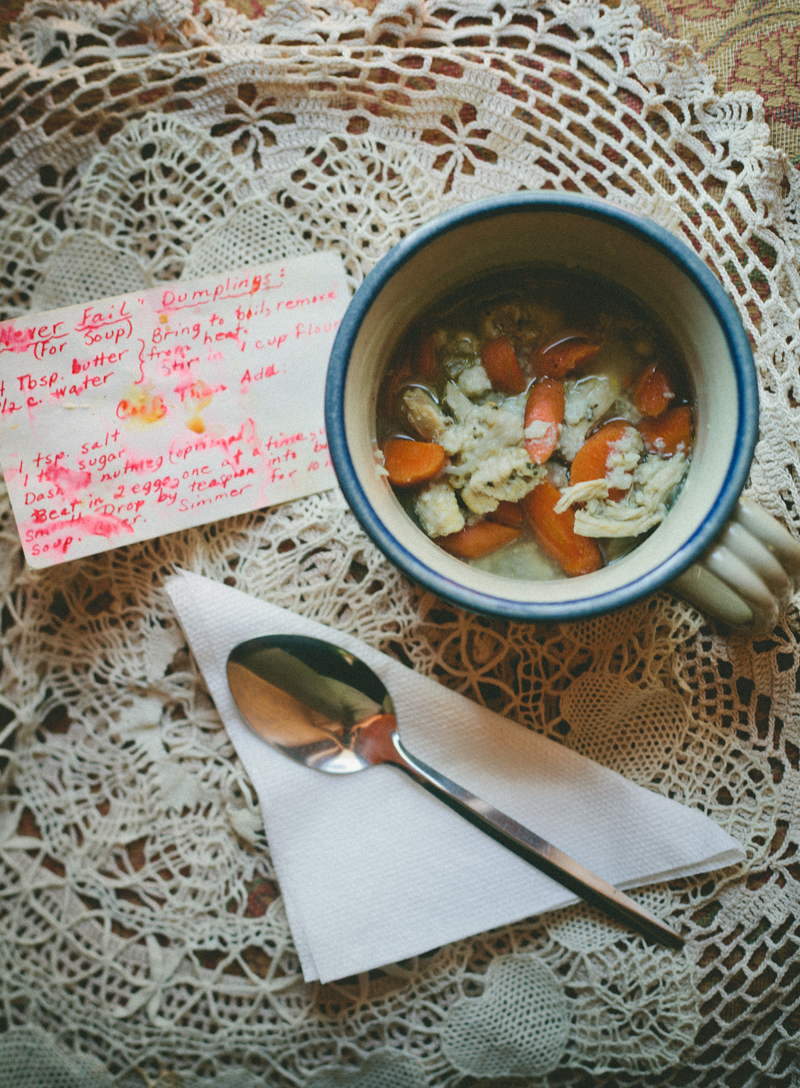 Never Fail" Dumplings:
(for Soup)
Tbsp. butter } Bring to boil, remove
/2 c. water } from heat.
Stir in 1 cup flour
Then Add:
1 tsp. salt
1 tsp sugar
Dash nutmeg (optional)
Beat in 2 eggs, one at a time,
smooth. Drop by teaspoon into
soup. Simmer for 10